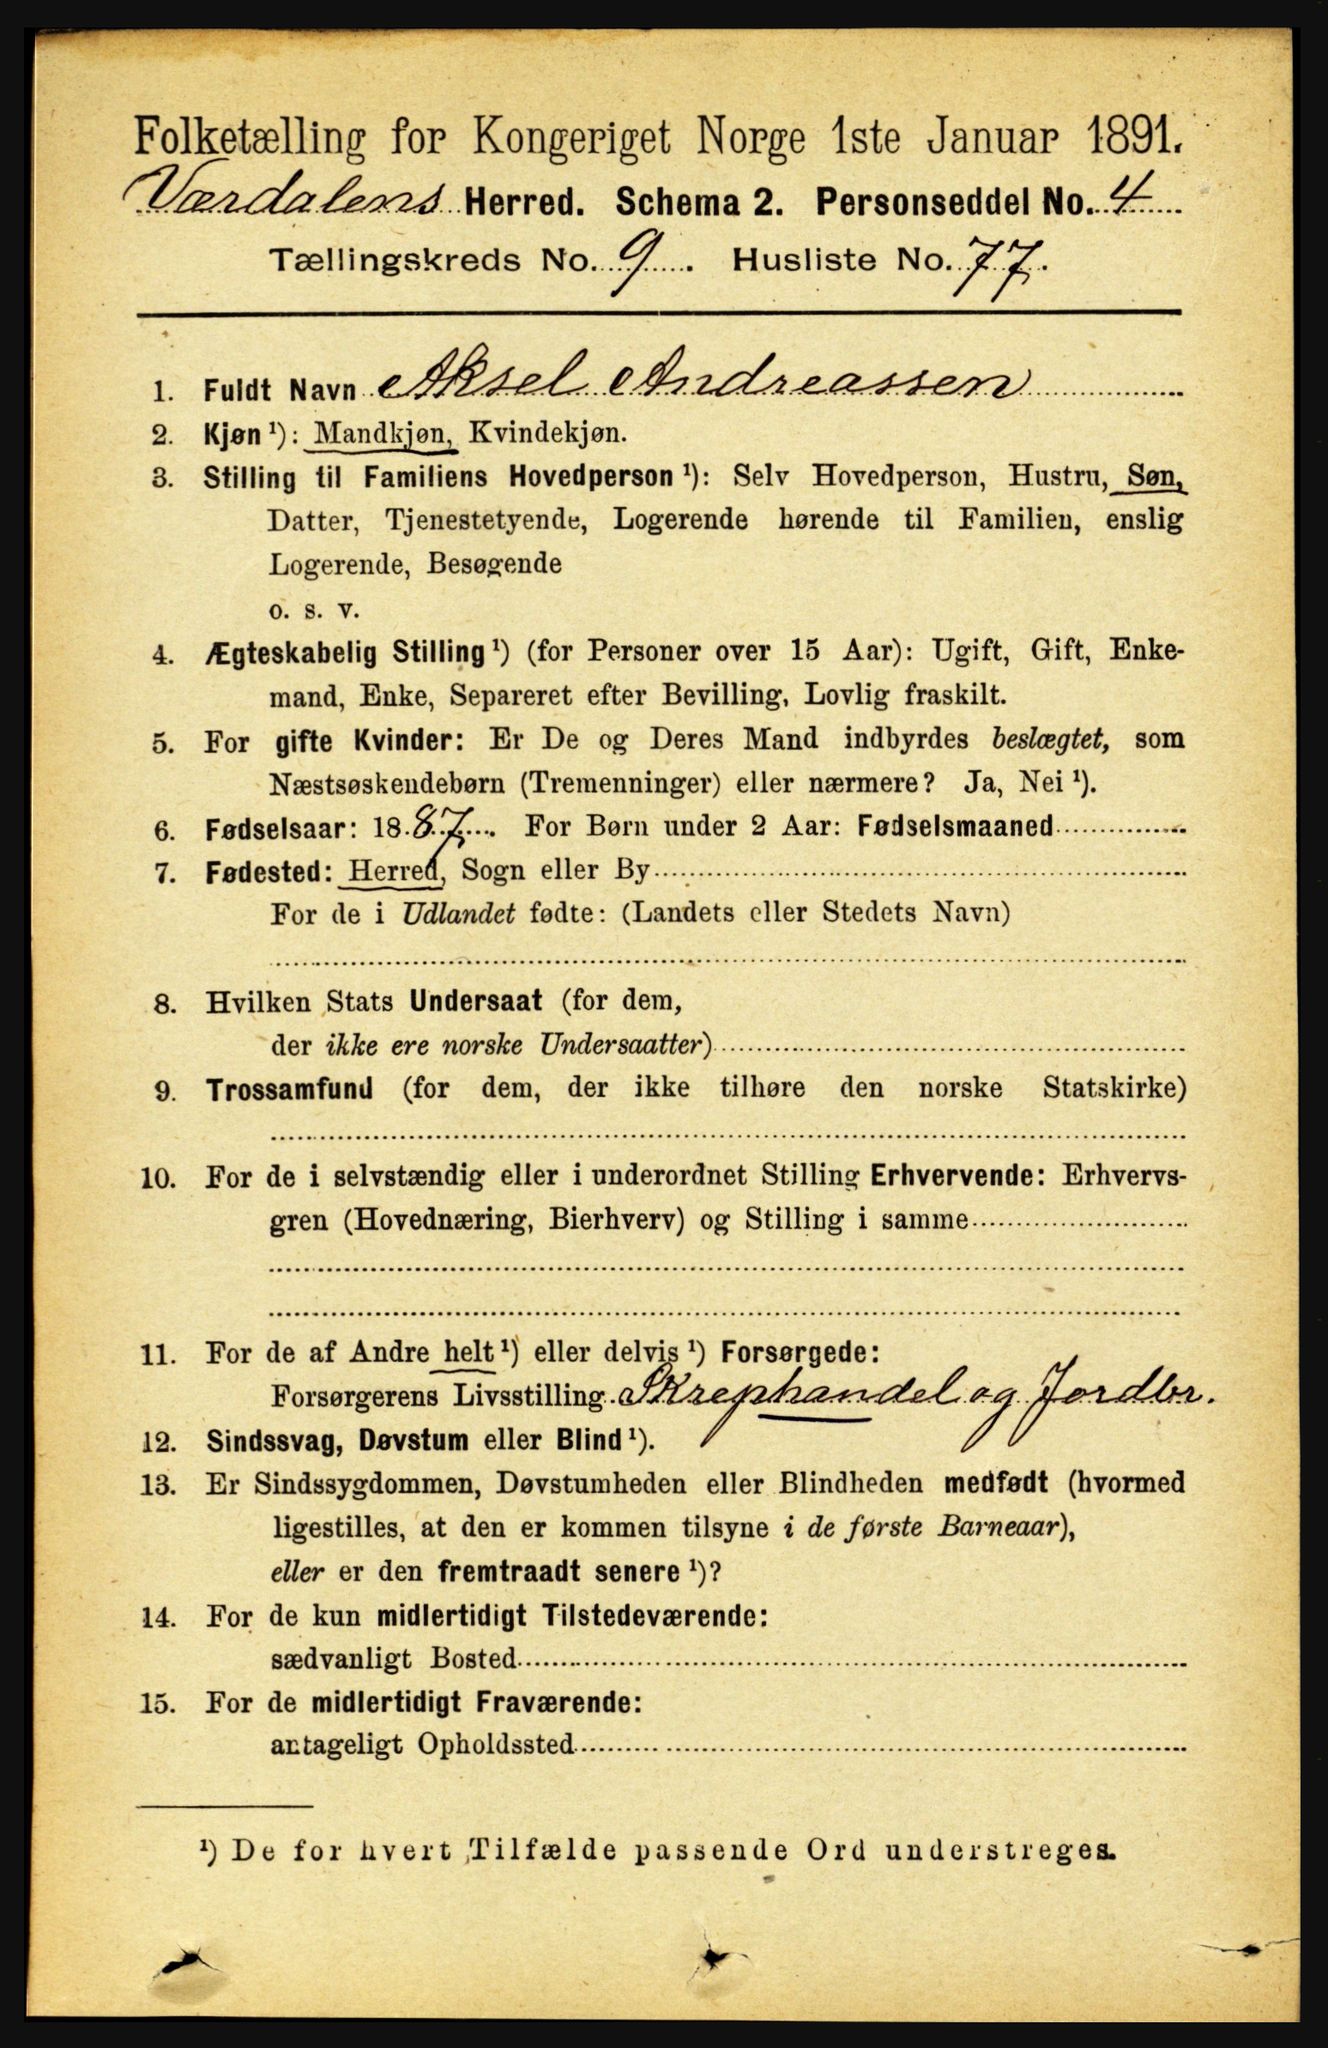 Folketælling for Kongeriget Norge 1ste Januar 1891.
Værdalens Herred. Schema 2. Personseddel No. 4
Tællingskreds No. 9. Husliste No. 77.
1. Fuldt Navn Aksel Andreassen
2. Kjøn ¹): Mandkjøn, Kvindekjøn.
3. Stilling til Familiens Hovedperson ¹): Selv Hovedperson, Hustru, Søn,
Datter, Tjenestetyende, Logerende hørende til Familien, enslig
Logerende, Besøgende
o. s. v.
4. Ægteskabelig Stilling ¹) (for Personer over 15 Aar): Ugift, Gift, Enke-
mand, Enke, Separeret efter Bevilling, Lovlig fraskilt.
5. For gifte Kvinder: Er De og Deres Mand indbyrdes beslægtet, som
Næstsøskendebørn (Tremenninger) eller nærmere? Ja, Nei ¹).
6. Fødselsaar: 1887. For Børn under 2 Aar: Fødselsmaaned
7. Fødested: Herred, Sogn eller By
For de i Udlandet fødte: (Landets eller Stedets Navn)
8. Hvilken Stats Undersaat (for dem,
der ikke ere norske Undersaatter)
9. Trossamfund (for dem, der ikke tilhøre den norske Statskirke)
10. For de i selvstændig eller i underordnet Stilling Erhvervende: Erhvervs-
gren (Hovednæring, Bierhverv) og Stilling i samme
11. For de af Andre helt ¹) eller delvis ¹) Forsørgede:
Forsørgerens Livsstilling Skrephandel og Jordbr.
12. Sindssvag, Døvstum eller Blind ¹).
13. Er Sindssygdommen, Døvstumheden eller Blindheden medfødt (hvormed
ligestilles, at den er kommen tilsyne i de første Barneaar),
eller er den fremtraadt senere ¹)?
14. For de kun midlertidigt Tilstedeværende:
sædvanligt Bosted
15. For de midlertidigt Fraværende:
antageligt Opholdssted
¹) De for hvert Tilfælde passende Ord understreges.